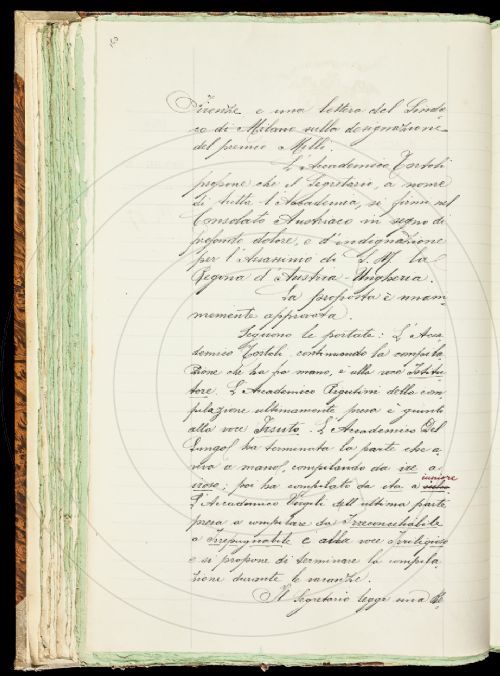 Firenze e una lettera del Sinda-
co di Milano sulla designazione
del premio Milli.
L'Accademico Tortoli
propone che il Segretario, a nome
di tutta l'Accademia, si firmi nel
Consolato Austriaco in segno di
profondo dolore, e d'indignazione
per l'Assassinio di S. M. la
Regina d'Austria-Ungheria.
La proposta è unani-
memente approvata.
Seguono le portate: L'Acca-
demico Tortoli, continuando la compila-
zione che ha fra mano, è alla voce Istitu-
tore. L'Accademico Rigutini della com-
pilazione ultimamente presa è giunto
alla voce Issuto. L'Accademico Del
Lungo ha terminata la parte che a-
veva a mano, compilando da ire a
iroso; poi ha compilato da età a iuniore
L'Accademico Vergili dell'ultima parte
presa a compilare da Irreconciliabile
a Irrepugnabile è alla voce
e si propone di terminare la compila-
zione durante le vacanze.
Il Segretario legge una